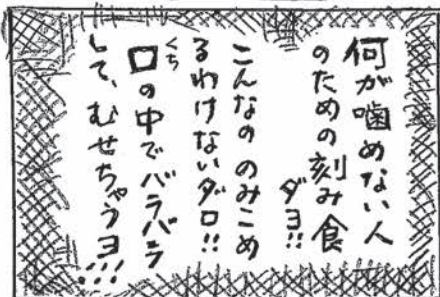 何が噛めない人
のための刻み食
ダヨ!!
こんなの のみこめ
るわけないダロ!!
口の中でバラバラ
くち
して、むせちゃうヨ!!!